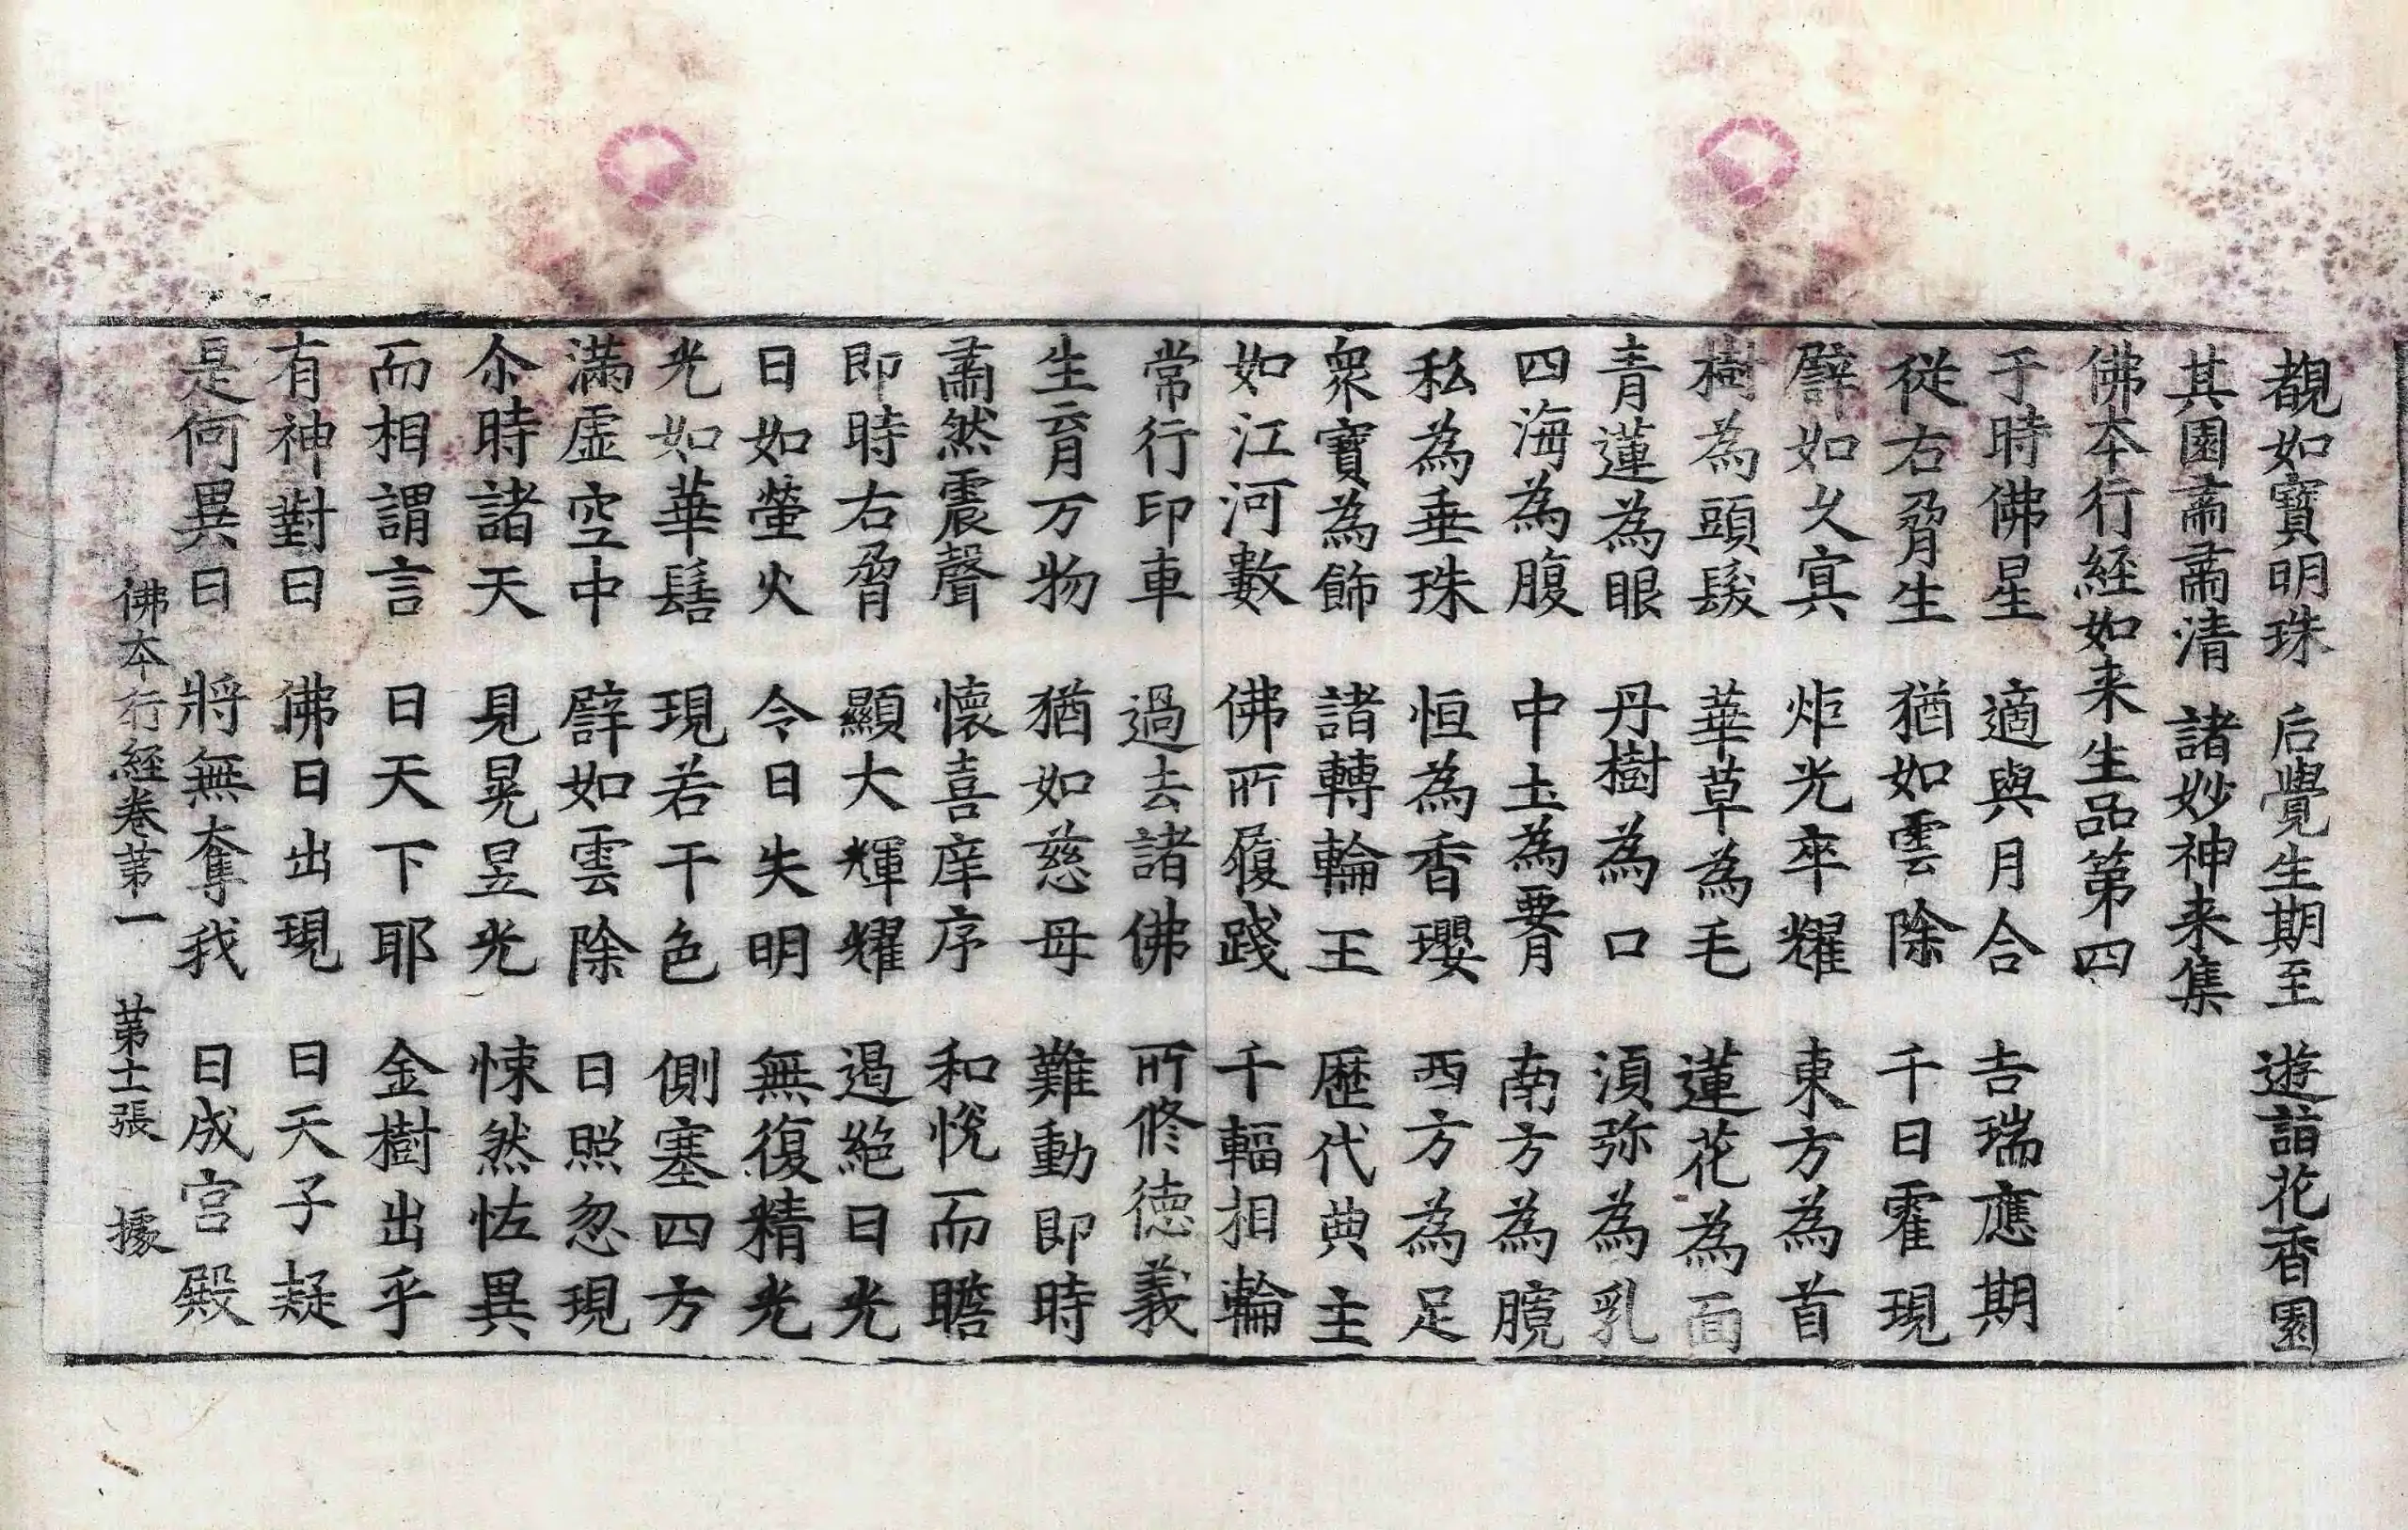 覩如寶明珠　后覺生期至　遊詣花香園
其園肅肅清　諸妙神来集
佛本行經如来生品第四
于時佛星適與月合吉瑞應期
從右脅生猶如雲除千日霍現
譬如久冥炬光卒耀東方為首
樹為頭髮華草為毛蓮花為面
青蓮為眼丹樹為口湏弥為乳
四海為腹中土為𦝫南方為臗
私為垂珠恒為香瓔西方為足
衆寶為飾諸轉輪王歷代典主
如江河數佛所履踐千輻相輪
常行印車過去諸佛所脩德義
生育万物猶如慈母難動即時
肅然震聲懷喜庠序和悅而瞻
即時右脅顯大輝耀遏絕日光
日如螢火令日失明無復精光
光如華鬘現若干色側塞四方
滿虛空中譬如雲除日照忽現
尒時諸天見晃昱光悚然恠異
而相謂言日天下耶金樹出乎
有神對曰佛日出現日天子疑
是何異日將無奪我日成宮殿
佛本行經卷苐一　苐十二張　據